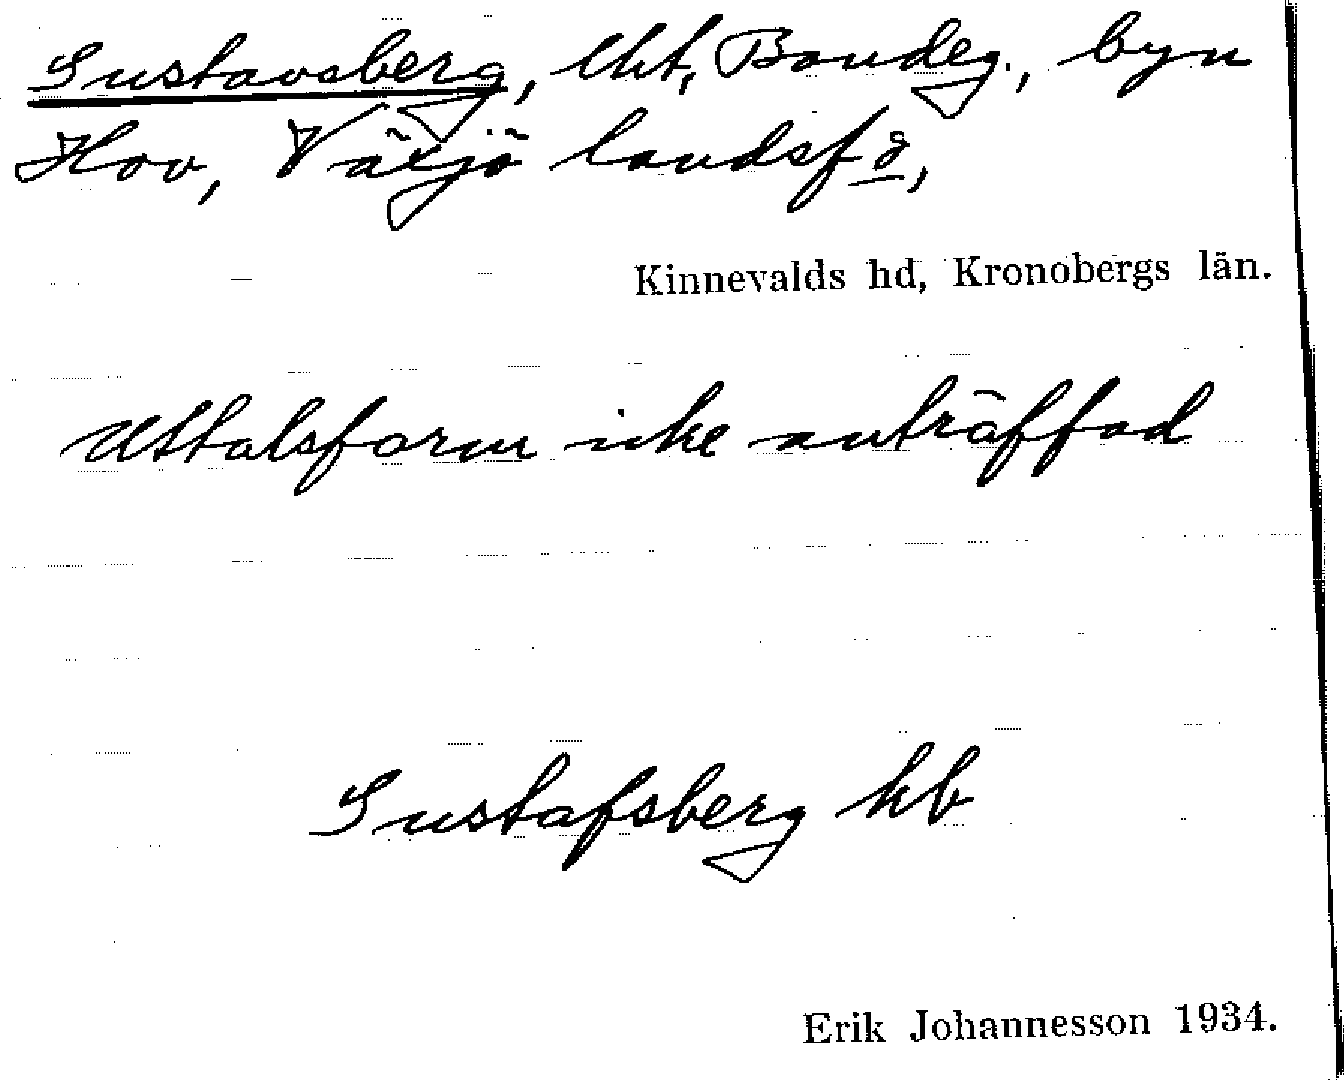 Gustavsberg, lht, Bondeg., byn
Hov, Växjö landsfs,
Kinnevalds hd, Kronobergs län.
Uttalsform icke anträffad
Gustafsberg hb
Erik Johannesson 1934.